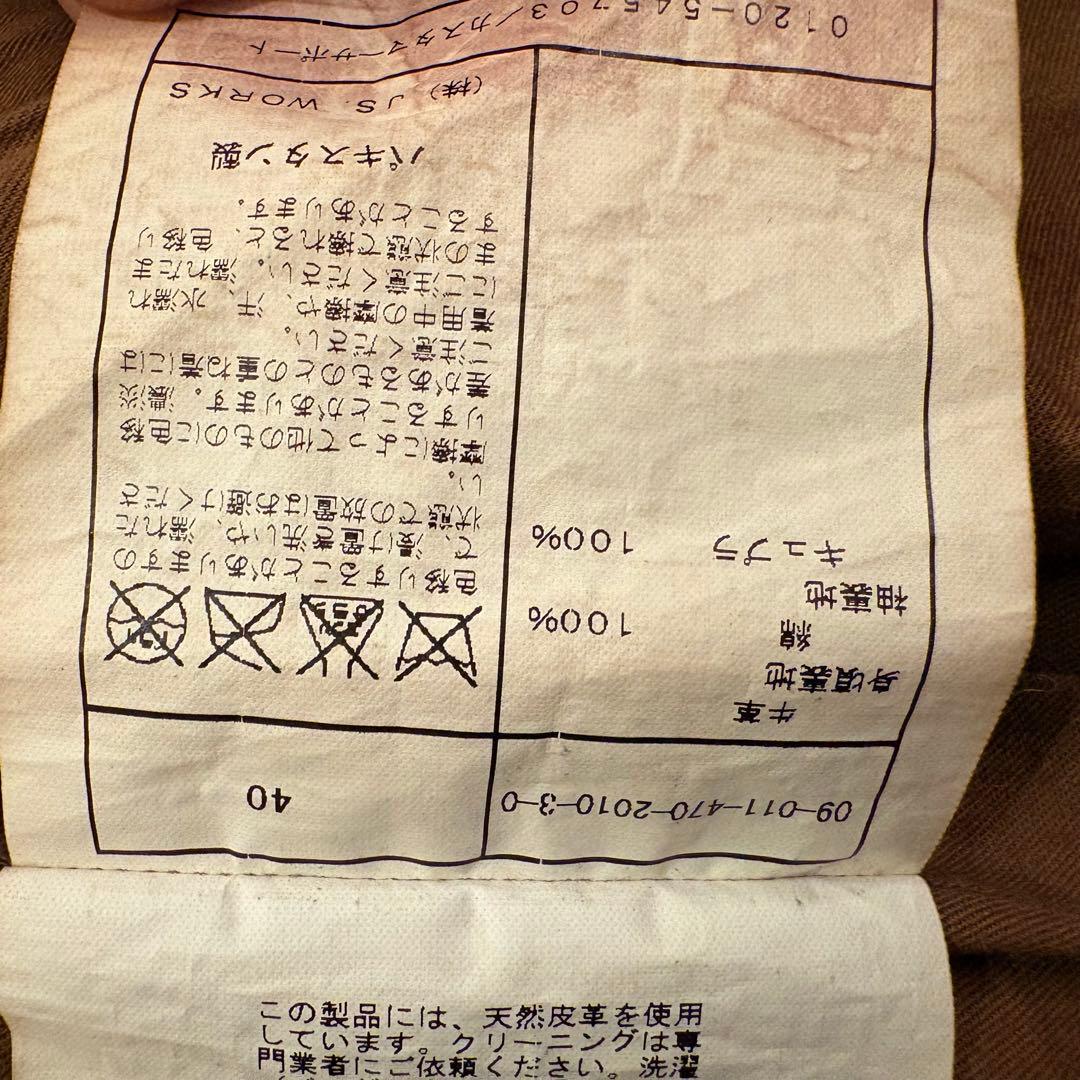 09-011-470-2010-3-0
40
牛革
身頃裏地
綿 100%
袖裏地
キュプラ 100%
ドライ
色移りすることがありますの
で、浸け置き洗いや、濡れた
状態での放置はお避けくださ
い。
摩擦によって他のものに色移
りすることがあります。濃淡
差があるものとの重ね着には
ご注意ください。
着用中の摩擦や、汗、水濡れ
にご注意ください。濡れたま
まの状態で擦れると、色移り
することがあります。
パキスタン製
(株) JS. WORKS
0120-545703/カスタマーサポート
この製品には、天然皮革を使用
しています。クリーニングは専
門業者にご依頼ください。洗濯